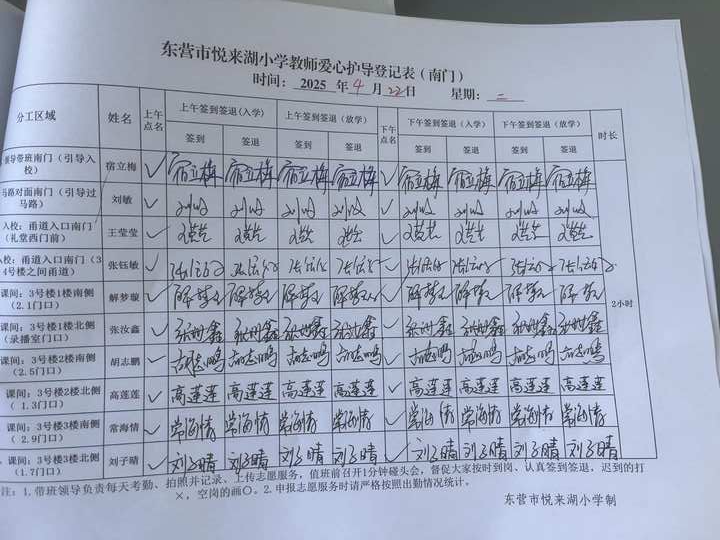 东营市悦来湖小学教师爱心护导登记表（南门）
时间： 2025 年 4 月 22日 星期： 二
分工区域 姓名 上午点名 上午签到签退(入学) 上午签到签退（放学） 下午点名 下午签到签退（入学） 下午签到签退（放学） 时长
签到 签退 签到 签退 签到 签退 签到 签退
领导带班南门（引导入校） 宿立梅 ✓ 宿立梅 宿立梅 宿立梅 宿立梅 ✓ 宿立梅 宿立梅 宿立梅 宿立梅 2小时
马路对面南门（引导过马路） 刘敏 ✓ 刘敏 刘敏 刘敏 刘敏 ✓ 刘敏 刘敏 刘敏 刘敏
入校：甬道入口南门（礼堂西门前） 王莹莹 ✓ 王莹莹 王莹莹 王莹莹 王莹莹 ✓ 王莹莹 王莹莹 王莹莹 王莹莹
入校：甬道入口南门（3 4号楼之间甬道） 张钰敏 ✓ 张钰敏 张钰敏 张钰敏 张钰敏 ✓ 张钰敏 张钰敏 张钰敏 张钰敏
课间：3号楼1楼南侧（2.1门口） 解梦璇 ✓ 解梦璇 解梦璇 解梦璇 解梦璇 ✓ 解梦璇 解梦璇 解梦璇 解梦璇
课间：3号楼1楼北侧（录播室门口） 张汝鑫 ✓ 张汝鑫 张汝鑫 张汝鑫 张汝鑫 ✓ 张汝鑫 张汝鑫 张汝鑫 张汝鑫
课间：3号楼2楼南侧（2.5门口） 胡志鹏 ✓ 胡志鹏 胡志鹏 胡志鹏 胡志鹏 ✓ 胡志鹏 胡志鹏 胡志鹏 胡志鹏
课间：3号楼2楼北侧（1.3门口） 高莲莲 ✓ 高莲莲 高莲莲 高莲莲 高莲莲 ✓ 高莲莲 高莲莲 高莲莲 高莲莲
课间：3号楼3楼南侧（2.9门口） 常海情 ✓ 常海情 常海情 常海情 常海情 ✓ 常海情 常海情 常海情 常海情
课间：3号楼3楼北侧（1.7门口） 刘子晴 ✓ 刘子晴 刘子晴 刘子晴 刘子晴 ✓ 刘子晴 刘子晴 刘子晴 刘子晴
注：1.带班领导负责每天考勤、拍照并记录、上传志愿服务，值班前召开1分钟碰头会，督促大家按时到岗、认真签到签退，迟到的打
×，空岗的画〇。2.申报志愿服务时请严格按照出勤情况统计。
东营市悦来湖小学制